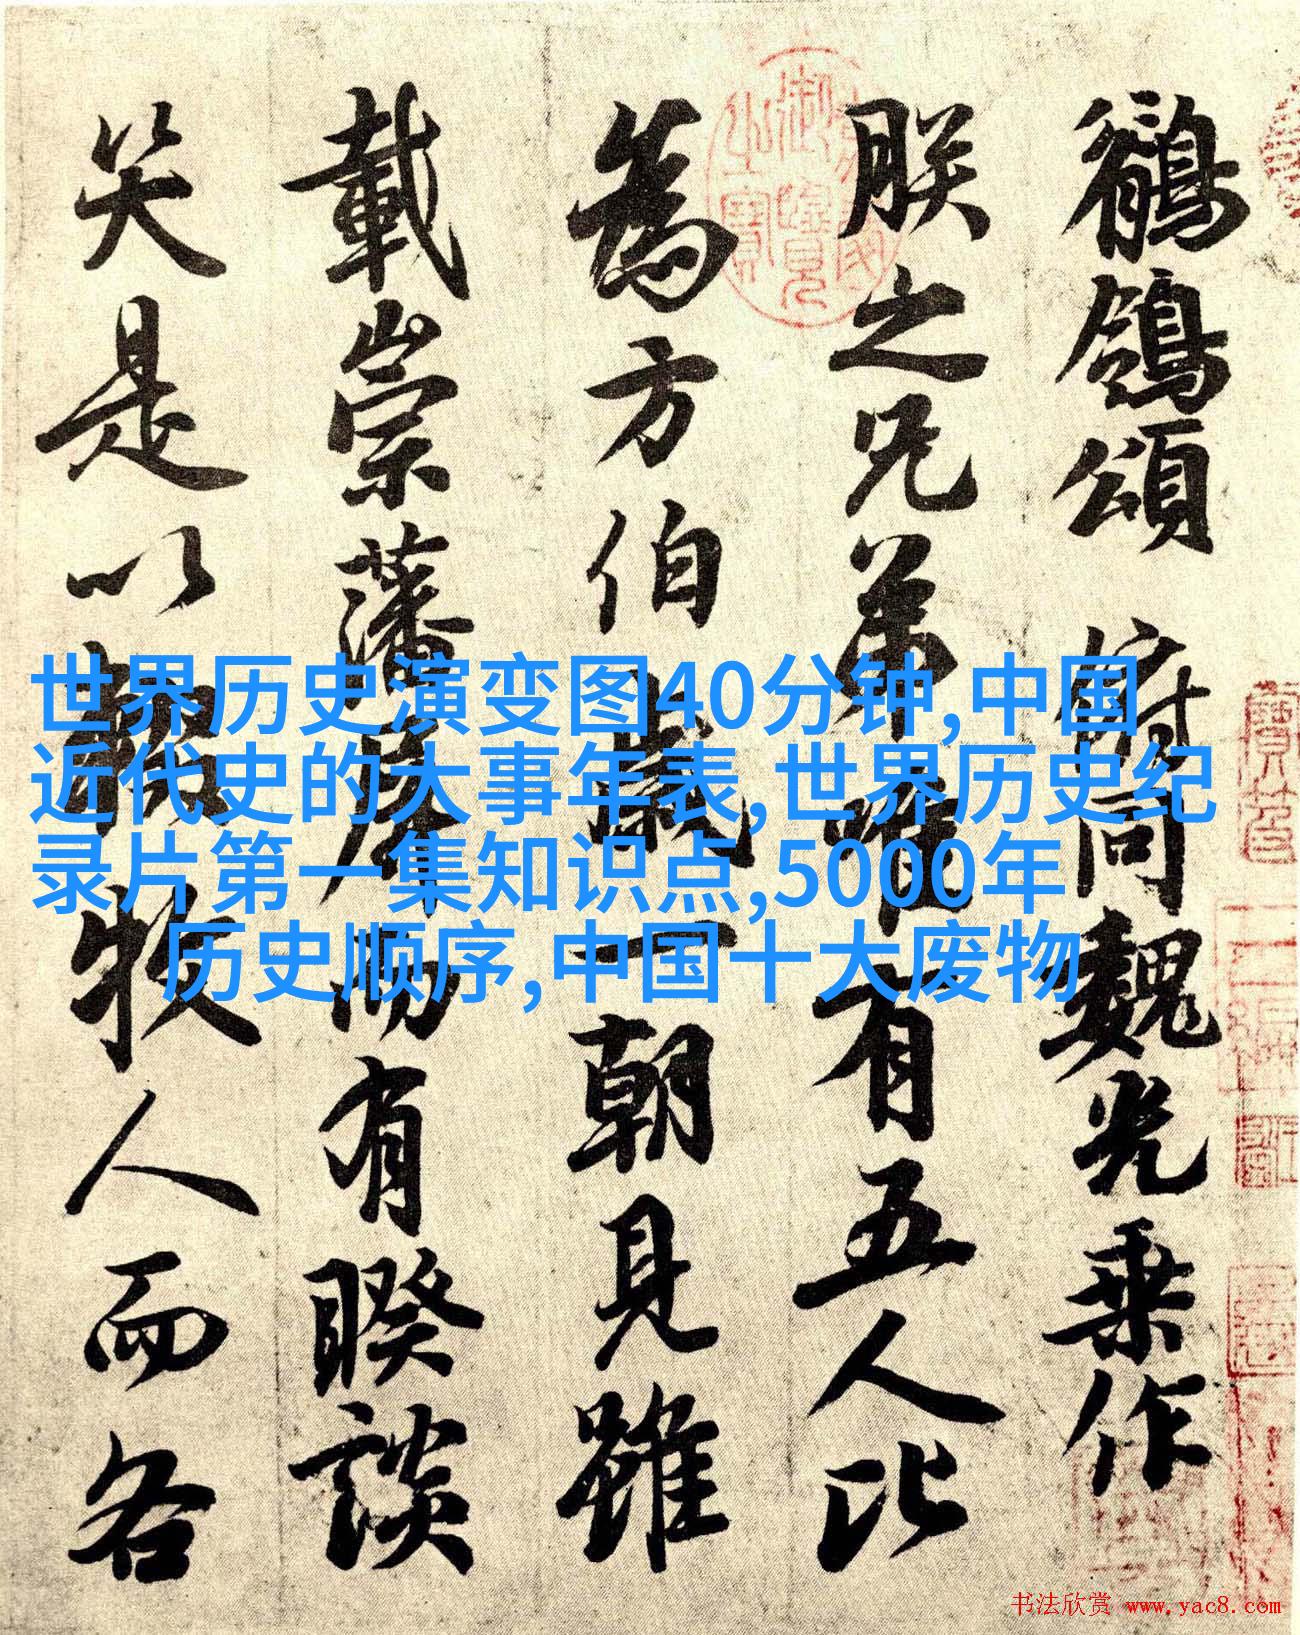 鶺鴒頌 俯同魏光乗作
朕之兄弟唯有五人比
為方伯歳一朝見雖
載崇藩屏而有睽談
笑是以輟牧人而各
世界历史演变图40分钟,中国
近代史的大事年表,世界历史纪
录片第一集知识点,5000年
历史顺序,中国十大废物
书法欣赏 www.yac8.com